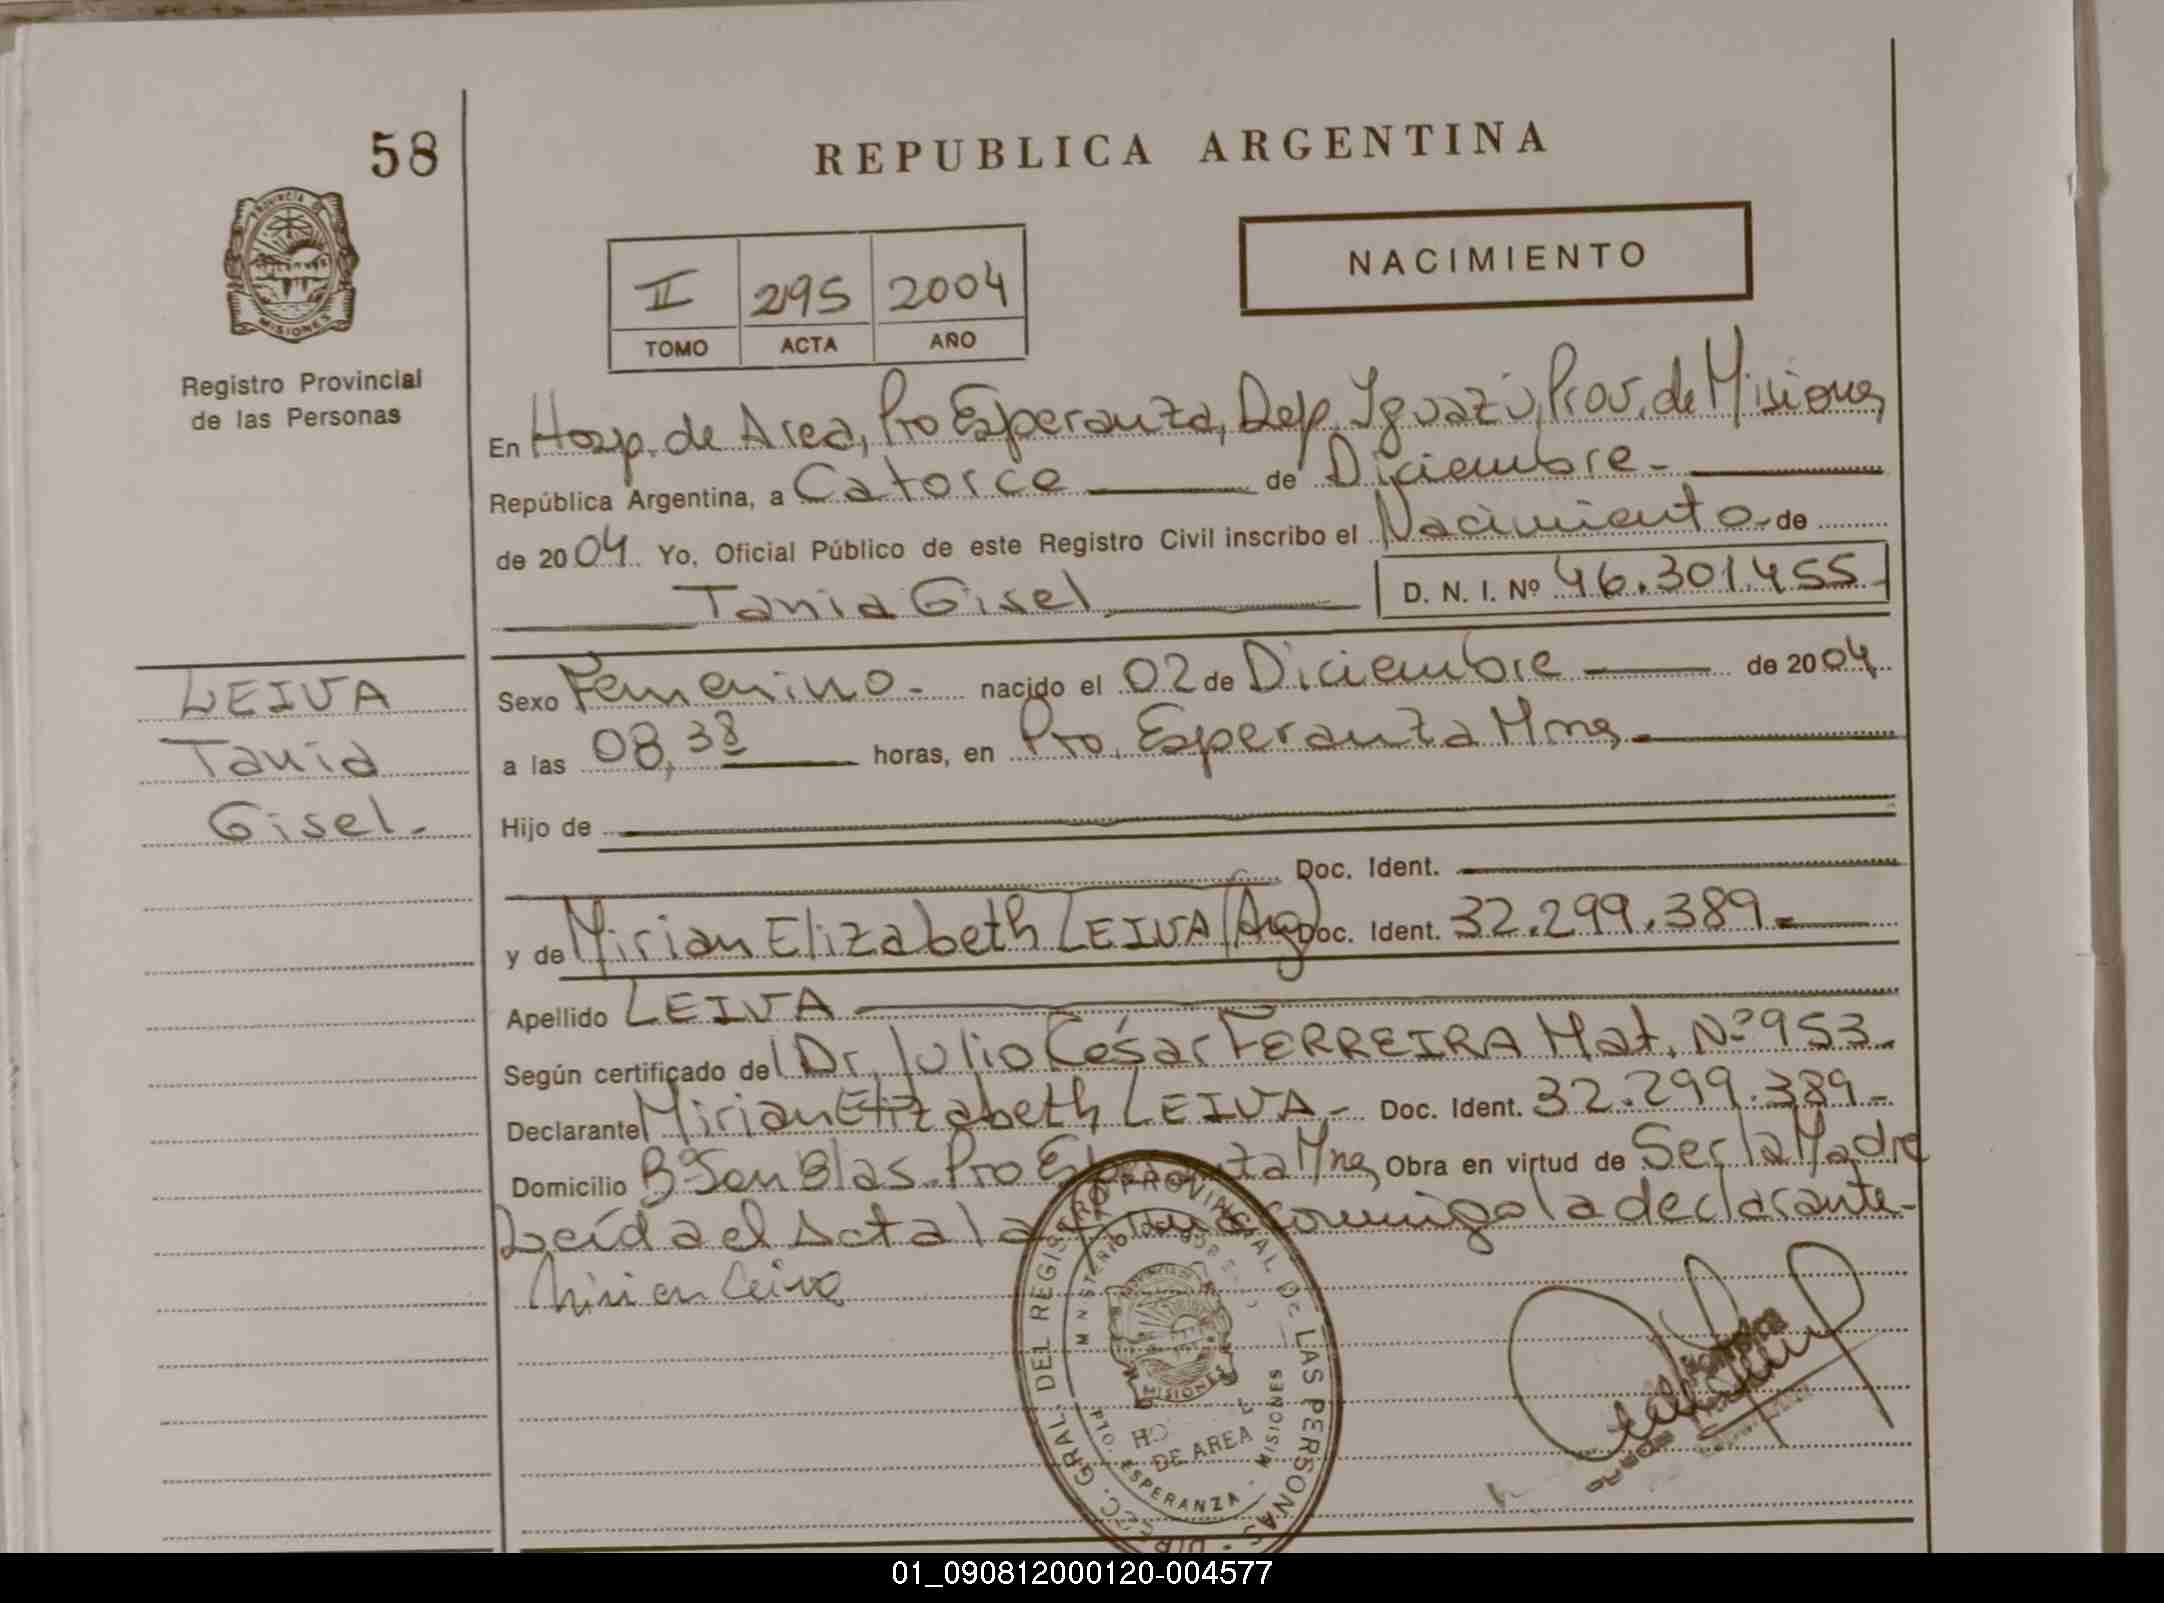 58
REPUBLICA ARGENTINA
PROVINCIA DE
MISIONES
Registro Provincial
de las Personas
NACIMIENTO
II 295 2004
TOMO ACTA AÑO
En Hosp. de Area, Pto Esperanza, Dep. Iguazú, Prov. de Misiones,
República Argentina, a Catorce de Diciembre.-
de 2004. Yo, Oficial Público de este Registro Civil inscribo el Nacimiento de
Tania Gisel D. N. I. Nº 46.301.455
LEIVA
Tania
Gisel.-
Sexo Femenino.- nacido el 02 de Diciembre de 2004
a las 08,38 horas, en Pto. Esperanza Mnes.-
Hijo de
Doc. Ident.
y de Mirian Elizabeth LEIVA (Arg) Doc. Ident. 32.299.389.-
Apellido LEIVA
Según certificado del Dr. Julio César FERREIRA Mat. Nº 953.
Declarante Mirian Elizabeth LEIVA.- Doc. Ident. 32.299.389.-
Domicilio Bº San Blas. Pto Esperanza Mnes, Obra en virtud de Ser la Madre
Leída el Acta la conmigo la declarante.-
Mirian Leiva
DIRECC. GRAL. DEL REGISTRO PROVINCIAL DE LAS PERSONAS
MISIONES
DE AREA
ESPERANZA - MISIONES
01_090812000120-004577